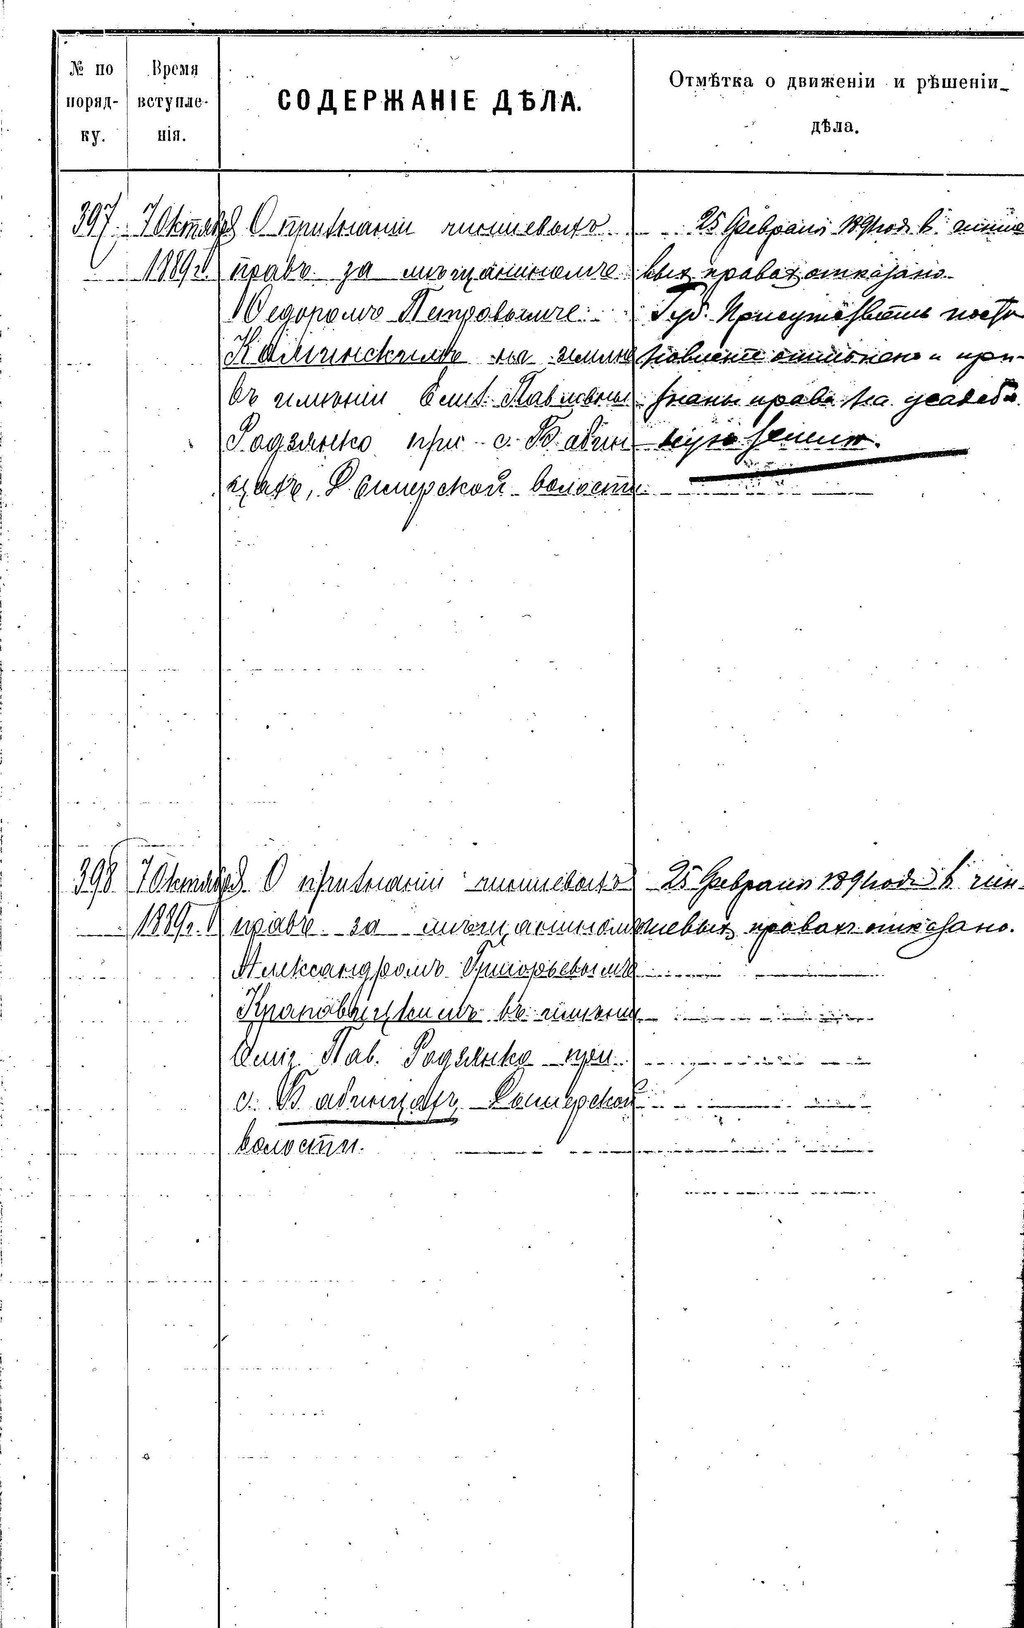 № по поряд- ку.
Время вступле- нія.
СОДЕРЖАНІЕ ДѢЛА.
Отмѣтка о движеніи и рѣшеніи дѣла.
397. 7 Октября 1889 г.
О признаніи чиншевыхъ
правъ за мѣщаниномъ
Ѳедоромъ Петровымъ
Каминскимъ на землю
въ имѣніи Елиз. Павловны
Родзянко при с. Бабин-
цахъ, Дымерской волости
25 Февраля 1891 года въ чинше
выхъ правахъ отказано.
Губ. Присутствіемъ поста
новленіе отмѣнено и при-
знаны права на усадеб
ную землю.
398 7 Октября 1889 г.
О признаніи чиншевыхъ
правъ за мѣщаниномъ
Александромъ Григорьевымъ
Краповицкимъ въ имѣніи
Елиз. Пав. Родзянко при
с. Бабинцахъ Дымерской
волости.
25 Февраля 1891 года въ чин-
шевыхъ правахъ отказано.